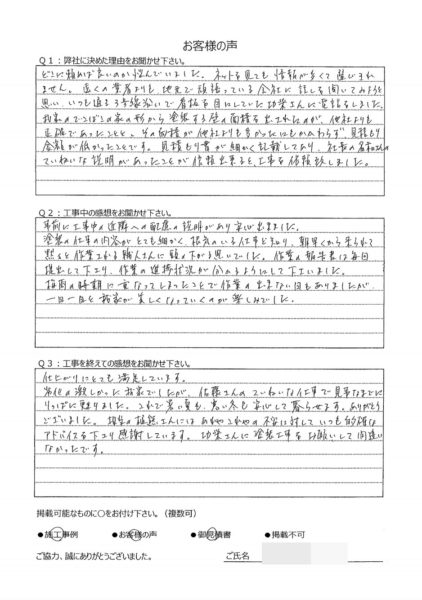 お客様の声
Q1：弊社に決めた理由をお聞かせ下さい。
どこに頼めば良いのか悩んでいました。ネットを見ても情報が多くて選びきれ
ません。遠くの業者よりも、地元で頑張っている会社に話しを聞いてみようと
思い、いつも通る線沿いで看板を目にしていた功栄さんに電話をしました。
我家のでこぼこの家の形から塗装する壁の面積を出されたのが、他社よりも
正確であったことと、その面積が他社よりも多かったにもかかわらず、見積もり
金額が低かったことです。見積もり書が細かく記載しており、社長の
ていねいな説明があったことが信頼出来ると、工事を依頼致しました。
Q2：工事中の感想をお聞かせ下さい。
事前に工事中の近隣への配慮の説明があり安心出来ました。
塗装の仕事の内容がとても細かく、根気のいる仕事と知り、朝早くから来られて
黙々と作業される職人さんに頭の下がる思いでした。作業の報告書は毎回
提出して下さり、作業の進捗状況が分かるようにして下さいました。
梅雨の時期に重なってしまったことで作業の出来ない日もありましたが、
一日一日と我家が美しくなっていくのが楽しみでした。
Q3：工事を終えての感想をお聞かせ下さい。
仕上がりにとても満足しています。
劣化の激しかった我家でしたが、佐藤さんのていねいな仕事で見事なまでに
りっぱに甦りました。これで暑い夏も、寒い冬も安心して暮らせます。ありがとう
ございました。担当の さんにはあれやこれやの不安に対していつも的確な
アドバイスを下さり感謝しています。功栄さんに塗装工事をお願いして間違い
なかったです。
掲載可能なものに○をお付け下さい。（複数可）
●施工事例 ●お客様の声 ●御見積書 ●掲載不可
ご協力、誠にありがとうございました。 ご氏名